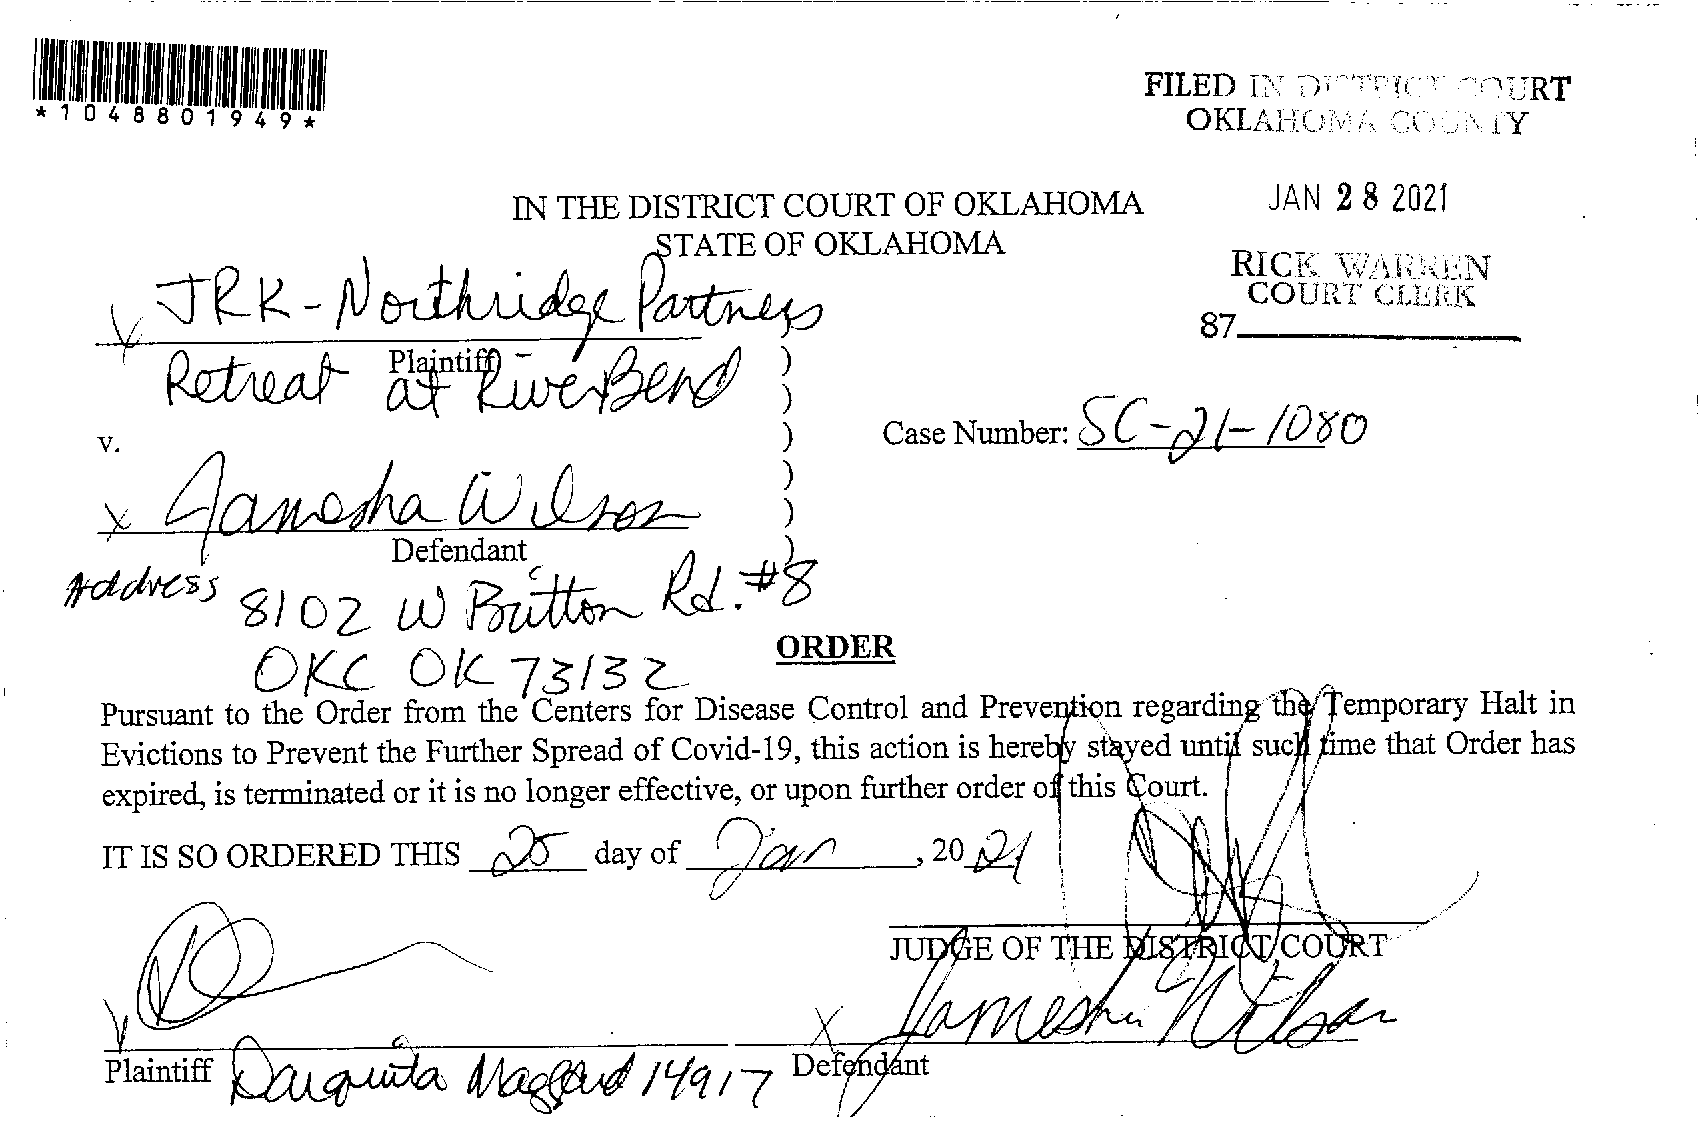 *1048801949*
FILED IN DISTRICT COURT
OKLAHOMA COUNTY
JAN 28 2021
RICK WARREN
COURT CLERK
87
IN THE DISTRICT COURT OF OKLAHOMA
STATE OF OKLAHOMA
JRK-Northridge Partners
Plaintiff
Retreat at RiverBend
v.
Case Number: SC-21-1080
Jamesha Wilson
Defendant
Address
8102 W Britton Rd. #8
OKC OK 73132
ORDER
Pursuant to the Order from the Centers for Disease Control and Prevention regarding the Temporary Halt in
Evictions to Prevent the Further Spread of Covid-19, this action is hereby stayed until such time that Order has
expired, is terminated or it is no longer effective, or upon further order of this Court.
IT IS SO ORDERED THIS 25 day of Jan, 2021
JUDGE OF THE DISTRICT COURT
X Jamesha Wilson
Plaintiff Darquita Maggard 14917 Defendant